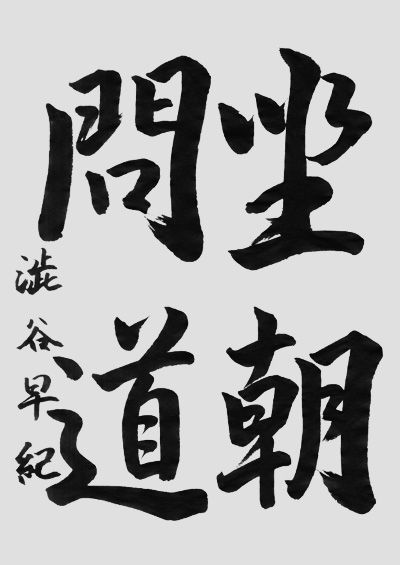 坐朝
問道
澁谷早紀